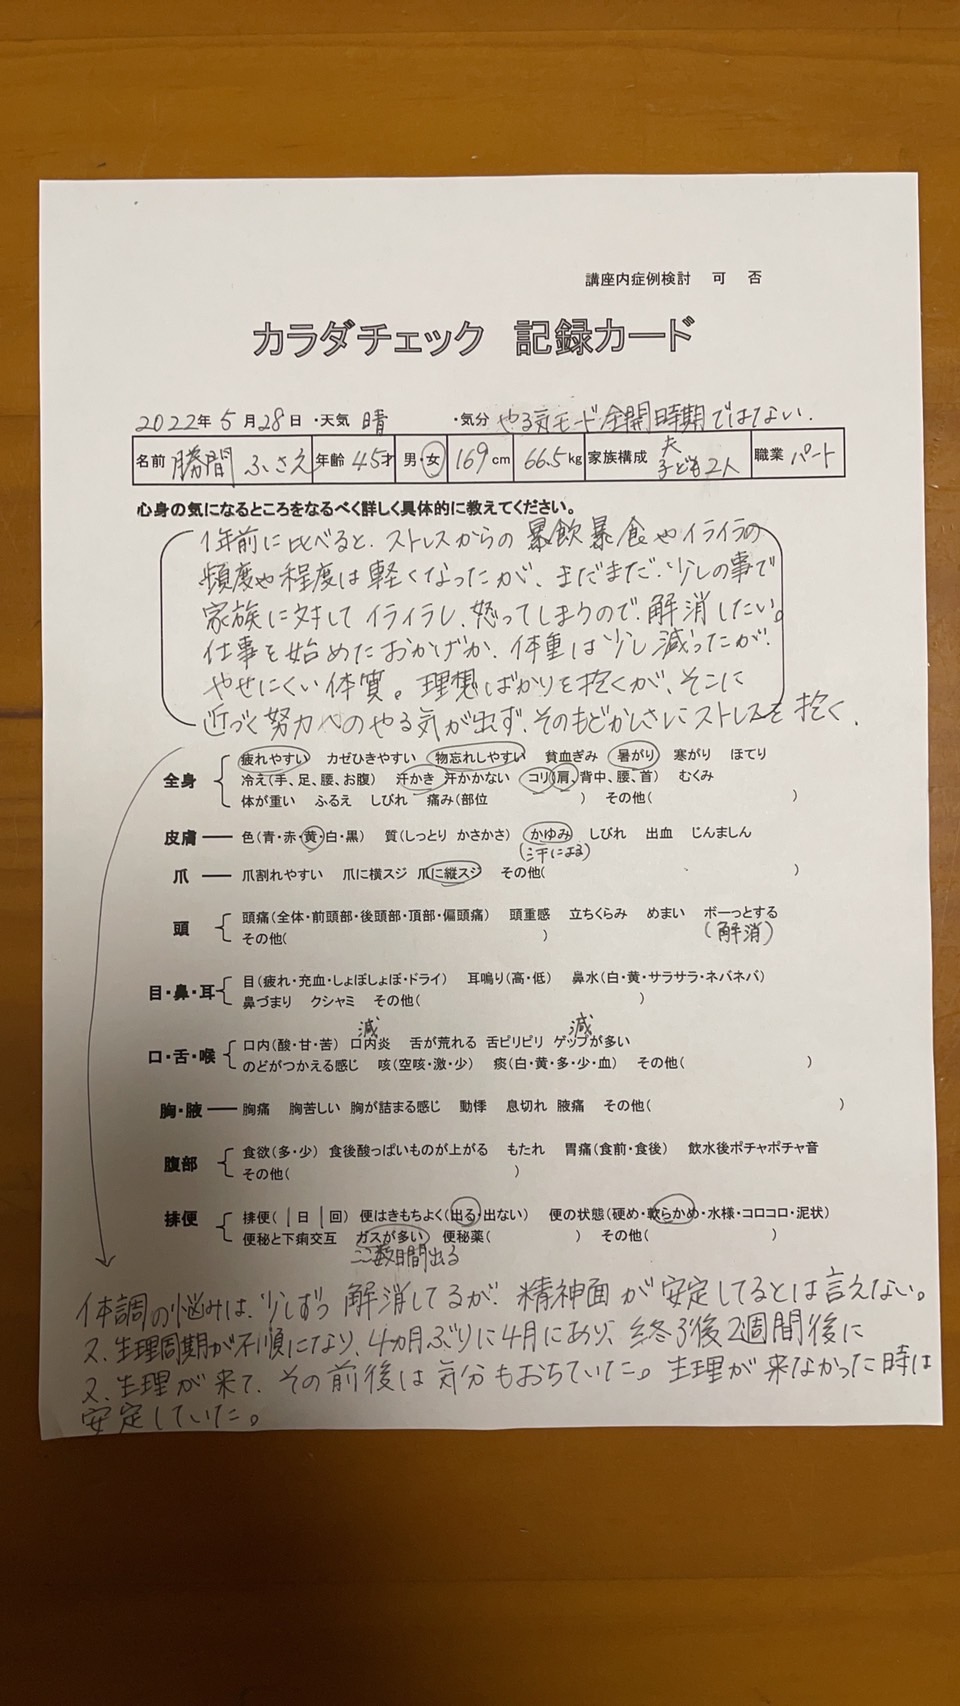 講座内症例検討 可 否
カラダチェック 記録カード
2022年 5月28日 ・天気 晴 ・気分 やる気モード全開時期ではない.
名前 勝間 ふさえ 年齢 45才 男・女 169cm 66.5kg 家族構成 夫 子ども2人 職業 パート
心身の気になるところをなるべく詳しく具体的に教えてください。
1年前に比べると、ストレスからの暴飲暴食やイライラの
頻度や程度は軽くなったが、まだまだ、少しの事で
家族に対してイライラし、怒ってしまうので、解消したい。
仕事を始めたおかげか、体重は少し減ったが、
やせにくい体質。理想ばかりを抱くが、そこに
近づく努力へのやる気が出ず、そのもどかしさにストレスを抱く.
全身 疲れやすい カゼひきやすい 物忘れしやすい 貧血ぎみ 暑がり 寒がり ほてり
冷え(手、足、腰、お腹) 汗かき 汗かかない コリ(肩、背中、腰、首) むくみ
体が重い ふるえ しびれ 痛み(部位 ) その他( )
皮膚 色(青・赤・黄・白・黒) 質(しっとり かさかさ) かゆみ しびれ 出血 じんましん
(汗による)
爪 爪割れやすい 爪に横スジ 爪に縦スジ その他( )
頭 頭痛(全体・前頭部・後頭部・頂部・偏頭痛) 頭重感 立ちくらみ めまい ボーっとする
その他( ) (解消)
目・鼻・耳 目(疲れ・充血・しょぼしょぼ・ドライ) 耳鳴り(高・低) 鼻水(白・黄・サラサラ・ネバネバ)
鼻づまり クシャミ その他( )
減 減
口・舌・喉 口内(酸・甘・苦) 口内炎 舌が荒れる 舌ピリピリ ゲップが多い
のどがつかえる感じ 咳(空咳・激・少) 痰(白・黄・多・少・血) その他( )
胸・腋 胸痛 胸苦しい 胸が詰まる感じ 動悸 息切れ 腋痛 その他( )
腹部 食欲(多・少) 食後酸っぱいものが上がる もたれ 胃痛(食前・食後) 飲水後ポチャポチャ音
その他( )
排便 排便( 1日 1回) 便はきもちよく(出る・出ない) 便の状態(硬め・軟らかめ・水様・コロコロ・泥状)
便秘と下痢交互 ガスが多い 便秘薬( ) その他( )
ここ数日間出る
体調の悩みは、少しずつ解消してるが、精神面が安定してるとは言えない。
又、生理周期が不順になり、4ヵ月ぶりに4月にあり、終了後2週間後に
又、生理が来て、その前後は気分もおちていた。生理が来なかった時は
安定していた。